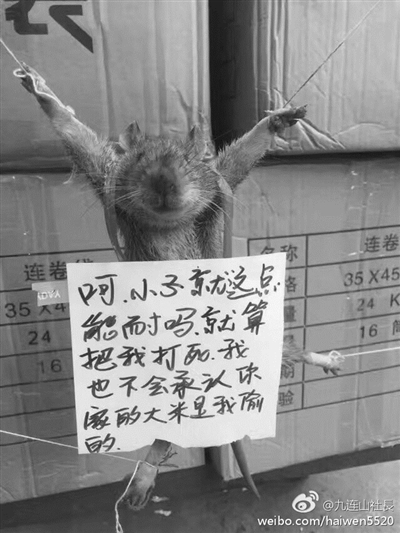 呵.小子.就这点
能耐吗.就算
把我打死.我
也不会承认你
家的大米是我偷
的.
连卷袋
35 X 4
24
16
名称 连卷
格 35X45
量 24 K
16
验
@九连山社长
weibo.com/haiwen5520